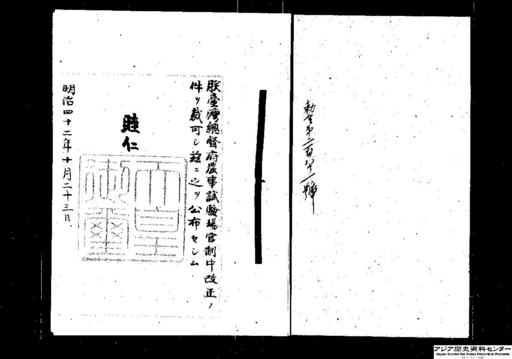 朕臺灣總督府農事試驗場官制中改正ノ
件ヲ裁可シ玆ニ之ヲ公布セシム
睦仁
天皇御璽
明治四十二年十月二十三日
アジア歴史資料センター
Japan Center for Asian Historical Records